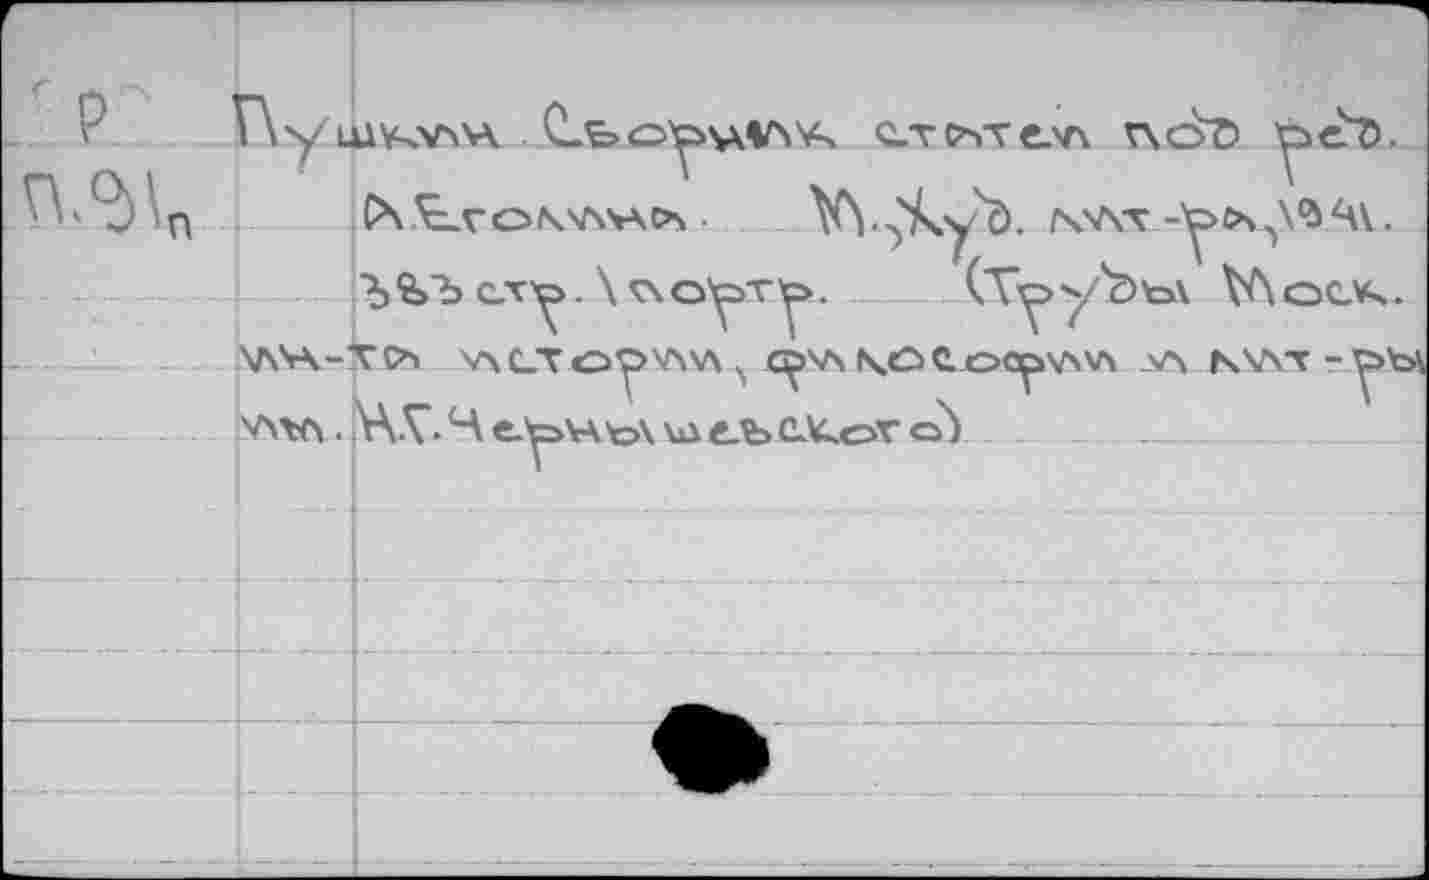 Р
П.91п
Пушкин. Сборник статей под ред.
А.Еголина. М.,Худ. лит-ра,1941.
393 стр.\портр. (Труды Моск.
ин-та истории, философии и лит-ры
им. Н.Г.Чернышевского)